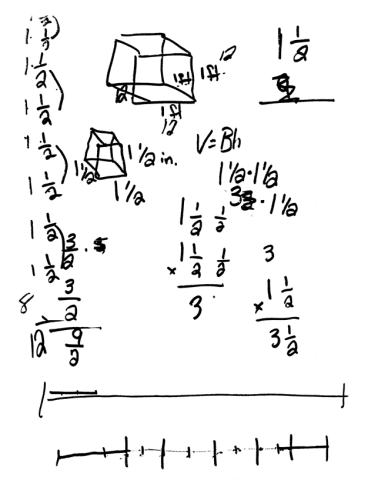 1 1/2
1 1/2
1 1/2
1 1/2
1 1/2
1 1/2
1 1/2
3/2 ·
3/2
8
12 9/2
12
1ft 1ft
12 1ft
12
1 1/2 in.
1 1/2
1 1/2
1 1/2
V=Bh
1 1/2 · 1 1/2
3 · 1 1/2
1 1/2 1/2
× 1 1/2 1/2
3
3
× 1 1/2
3 1/2